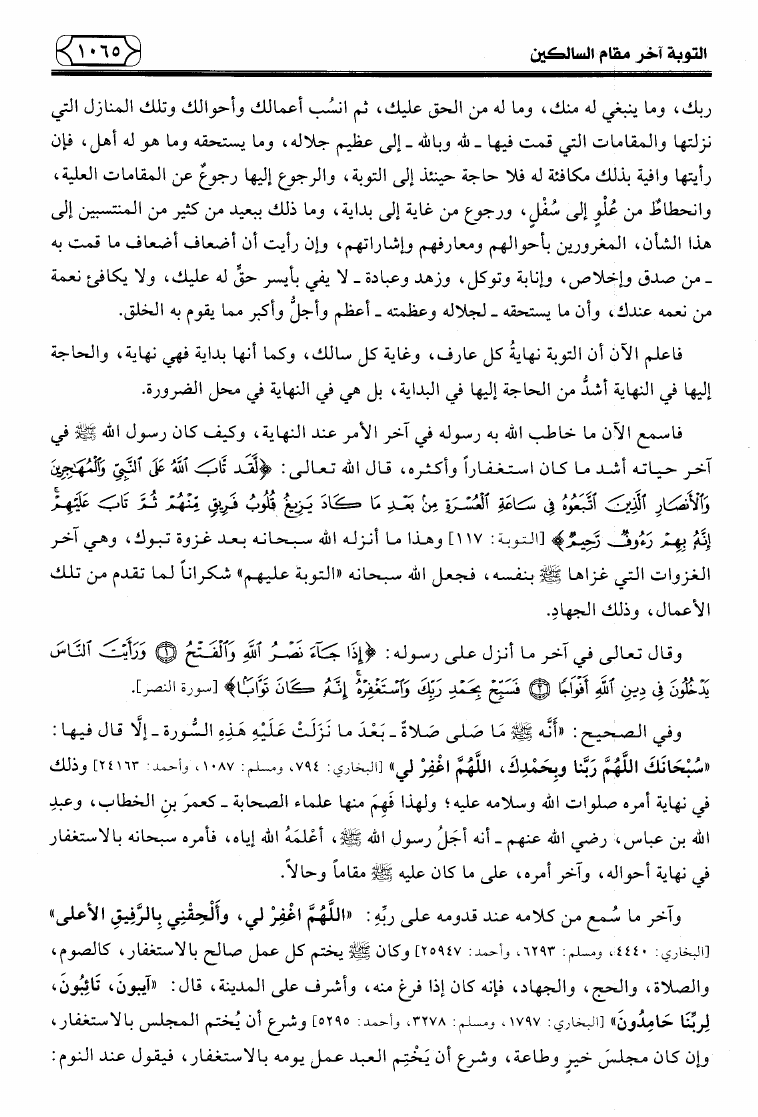 التوبة آخر مقام السالكين
١٠٦٥
ربك، وما ينبغي له منك، وما له من الحق عليك، ثم انسُب أعمالك وأحوالك وتلك المنازل التي
نزلتها والمقامات التي قمت فيها ـ لله وبالله ـ إلى عظيم جلاله، وما يستحقه وما هو له أهل، فإن
رأيتها وافية بذلك مكافئة له فلا حاجة حينئذ إلى التوبة، والرجوع إليها رجوعٌ عن المقامات العلية،
وانحطاطٌ من عُلْوٍ إلى سُفْلٍ، ورجوع من غاية إلى بداية، وما ذلك ببعيد من كثير من المنتسبين إلى
هذا الشأن، المغرورين بأحوالهم ومعارفهم وإشاراتهم، وإن رأيت أن أضعاف أضعاف ما قمت به
ـ من صدق وإخلاص، وإنابة وتوكل، وزهد وعبادة ـ لا يفي بأيسر حقٍّ له عليك، ولا يكافئ نعمة
من نعمه عندك، وأن ما يستحقه ـ لجلاله وعظمته ـ أعظم وأجلُّ وأكبر مما يقوم به الخلق.
فاعلم الآن أن التوبة نهايةُ كل عارف، وغاية كل سالك، وكما أنها بداية فهي نهاية، والحاجة
إليها في النهاية أشدُّ من الحاجة إليها في البداية، بل هي في النهاية في محل الضرورة.
فاسمع الآن ما خاطب الله به رسوله في آخر الأمر عند النهاية، وكيف كان رسول الله ﷺ في
آخر حياته أشد ما كان استغفاراً وأكثره، قال الله تعالى: ﴿لَّقَد تَّابَ ٱللَّهُ عَلَى ٱلنَّبِيِّ وَٱلْمُهَٰجِرِينَ
وَٱلْأَنصَارِ ٱلَّذِينَ ٱتَّبَعُوهُ فِي سَاعَةِ ٱلْعُسْرَةِ مِنۢ بَعْدِ مَا كَادَ يَزِيغُ قُلُوبُ فَرِيقٍ مِّنْهُمْ ثُمَّ تَابَ عَلَيْهِمْ ۚ
إِنَّهُۥ بِهِمْ رَءُوفٌ رَّحِيمٌ﴾ [التوبة: ١١٧] وهذا ما أنزله الله سبحانه بعد غزوة تبوك، وهي آخر
الغزوات التي غزاها ﷺ بنفسه، فجعل الله سبحانه «التوبة عليهم» شكراناً لما تقدم من تلك
الأعمال، وذلك الجهادِ.
وقال تعالى في آخر ما أنزل على رسوله: ﴿إِذَا جَآءَ نَصْرُ ٱللَّهِ وَٱلْفَتْحُ ۝١ وَرَأَيْتَ ٱلنَّاسَ
يَدْخُلُونَ فِي دِينِ ٱللَّهِ أَفْوَاجًا ۝٢ فَسَبِّحْ بِحَمْدِ رَبِّكَ وَٱسْتَغْفِرْهُ ۚ إِنَّهُۥ كَانَ تَوَّابًا﴾ [سورة النصر].
وفي الصحيح: «أَنَّه ﷺ مَا صَلى صَلاةً ـ بَعْدَ ما نَزَلَتْ عَلَيْهِ هَذِهِ السُّورة ـ إلَّا قال فيها:
«سُبْحَانَكَ اللَّهُمَّ رَبَّنا وبِحَمْدِكَ، اللَّهُمَّ اغْفِرْ لي» [البخاري: ٧٩٤، ومسلم: ١٠٨٧، وأحمد: ٢٤١٦٣] وذلك
في نهاية أمره صلوات الله وسلامه عليه؛ ولهذا فَهِمَ منها علماء الصحابة ـ كعمرَ بنِ الخطاب، وعبدِ
الله بن عباس، رضي الله عنهم ـ أنه أجَلُ رسول الله ﷺ، أعْلمَهُ الله إياه، فأمره سبحانه بالاستغفار
في نهاية أحواله، وآخر أمره، على ما كان عليه ﷺ مقاماً وحالاً.
وآخر ما سُمع من كلامه عند قدومه على ربِّهِ: «اللَّهُمَّ اغْفِرْ لي، وأَلْحِقْنِي بِالرَّفِيقِ الأعلى»
[البخاري: ٤٤٤٠، ومسلم: ٦٢٩٣، وأحمد: ٢٥٩٤٧] وكان ﷺ يختم كل عمل صالح بالاستغفار، كالصوم،
والصلاة، والحج، والجهاد، فإنه كان إذا فرغ منه، وأشرف على المدينة، قال: «آيبونَ، تَائِبُونَ،
لِربِّنَا حَامِدُونَ» [البخاري: ١٧٩٧، ومسلم: ٣٢٧٨، وأحمد: ٥٢٩٥] وشرع أن يُختم المجلس بالاستغفار،
وإن كان مجلسَ خيرٍ وطاعة، وشرع أن يَخْتِم العبد عمل يومه بالاستغفار، فيقول عند النوم: